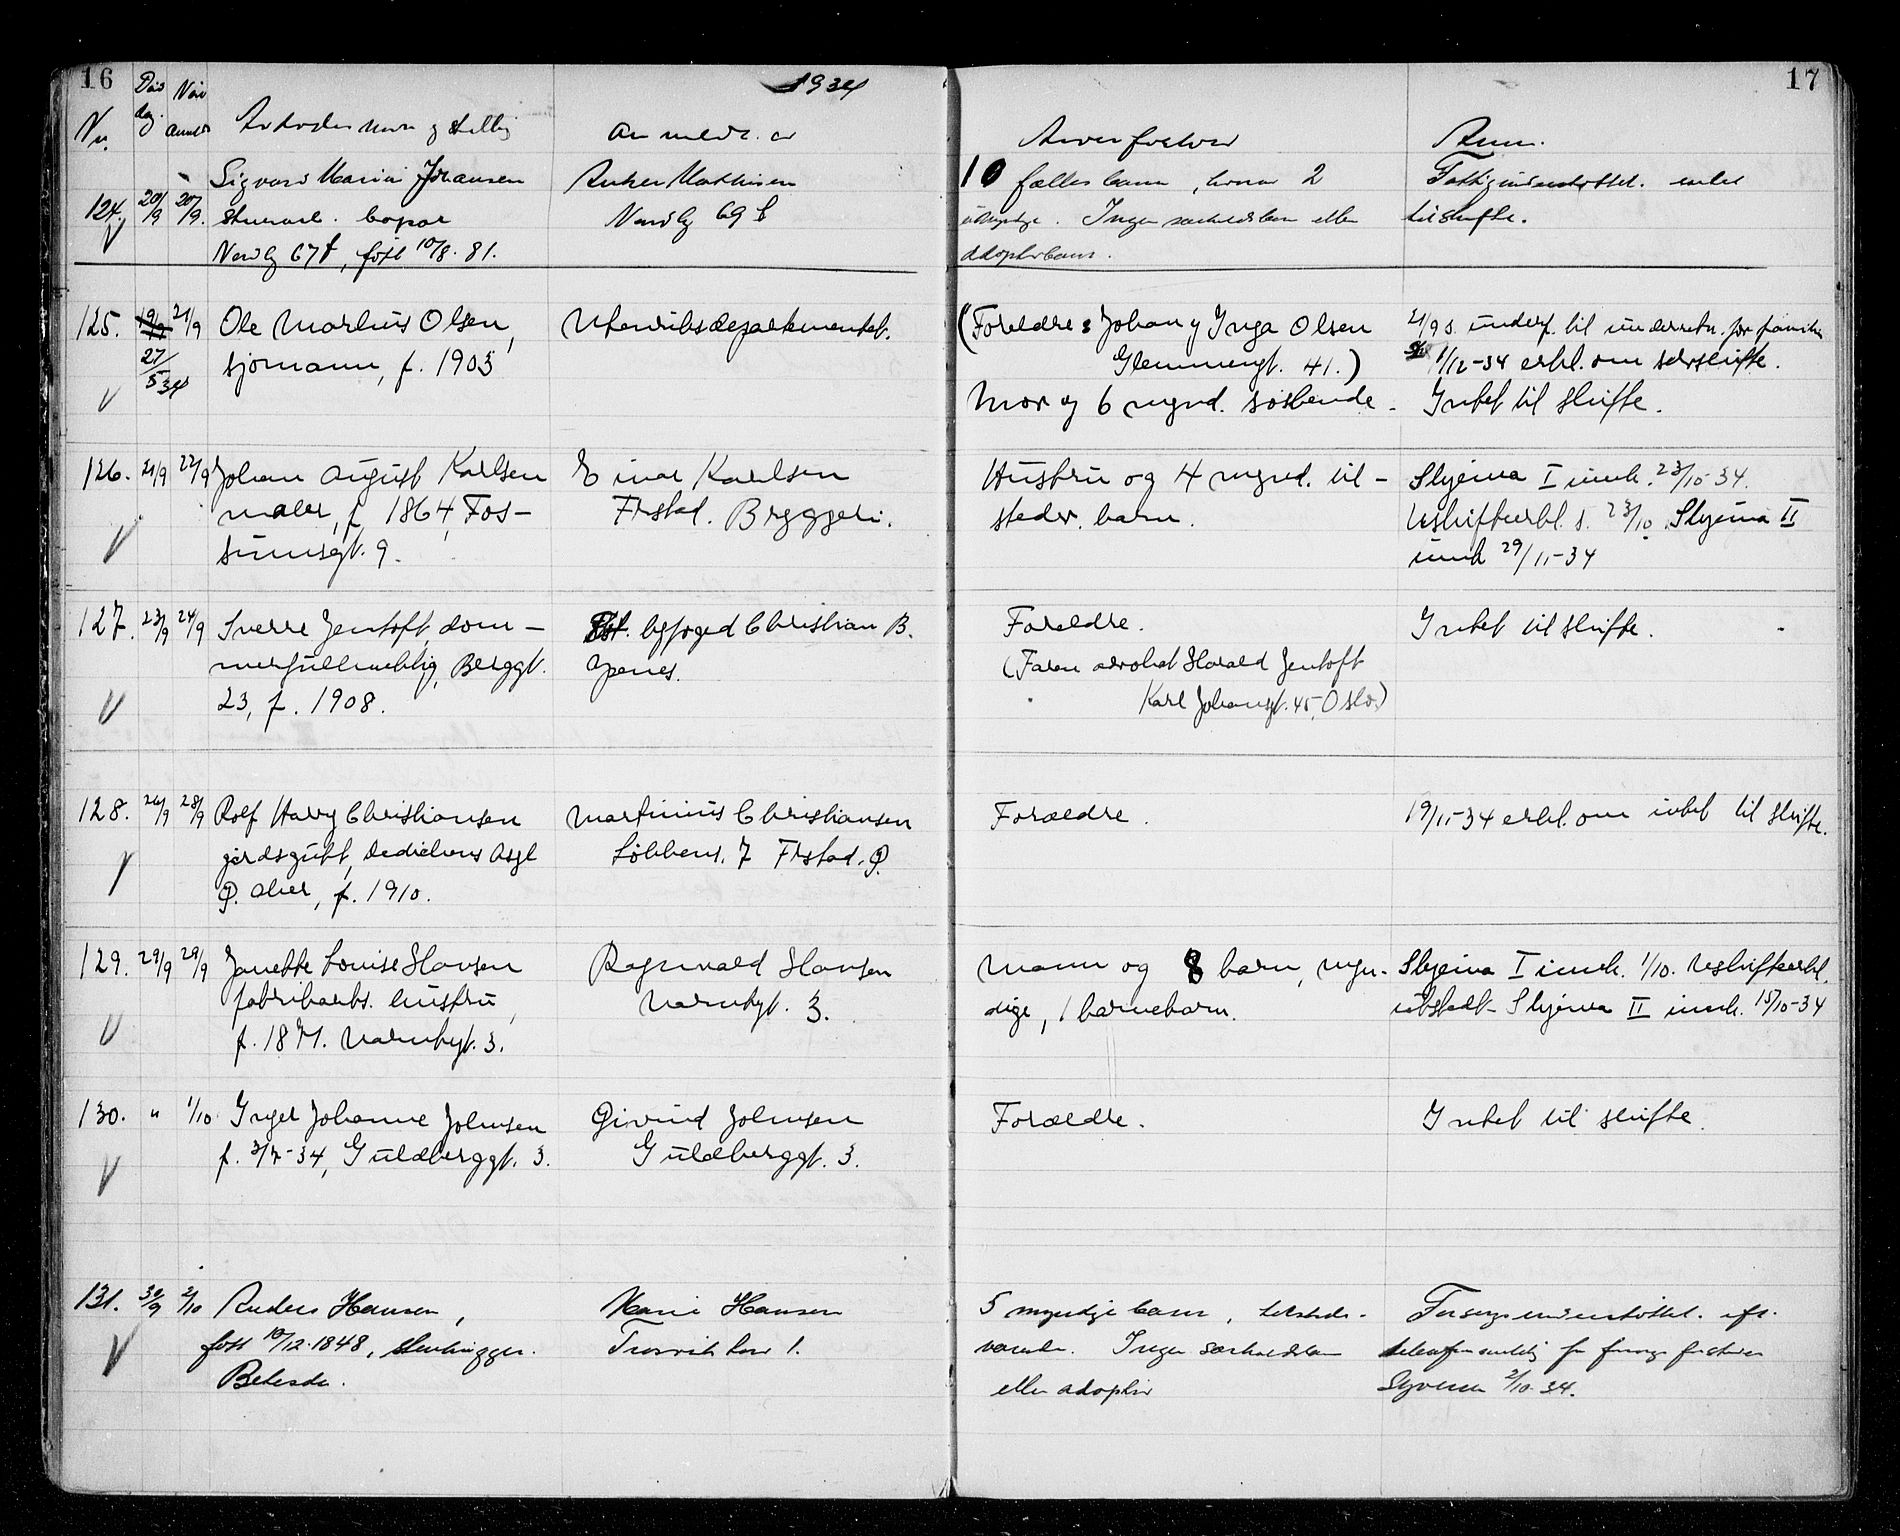 16
1934
17
Nr.
Døds dag.
Når anmeldt
Avdødes navn og stilling
Anmeldt av
Arveforhold
Anm.
124. 20/9 20/9.
Sigvard Maria Johansen
Nordby 67 f, født 10/8. 81.
Anker Mathisen
Nordby 69 b
10 fælles barn, hvorav 2
umyndige. Ingen særkuldsbarn eller
adoptivbarn.
Fattigunderstøttet. intet
til skifte.
125. 19/9 21/9
27/5 34
Ole Marlius Olsen,
sjømann, f. 1903
Utenriksdepartementet.
(Foreldre: Johan og Inga Olsen
Glemmengt. 41.)
Mor og 6 mynd. søskende.
21/9 s. underr. til underretn. for familien
1/12-34 erkl. om selvskifte.
Intet til skifte.
126. 21/9 22/9
Johan August Karlsen
maler, f. 1864, Fos-
sumsgt. 9.
Einar Karlsen
Frstad. Bryggeri.
Hustru og 4 mynd. til-
stedev. barn.
Skjema I innk. 23/10-34.
Uskifteerkl. s. 23/10. Skjema II
innk 29/11-34
127. 23/9 24/9
Sverre Jentoft, dom-
merfullmektig, Berggt.
23, f. 1908.
byfoged Christian B.
Apenes.
Foreldre.
(Faren advokat Harald Jentoft
Karl Johansgt. 45, Oslo)
Intet til skifte.
128. 26/9 28/9
Rolf Harry Christiansen
gårdsgutt, Dedichens Asyl
Ø. Aker, f. 1910.
Martinius Christiansen
Løkkens. 7 Frstad. Ø.
Forældre.
19/11-34 erkl. om intet til skifte.
129. 29/9 29/9
Janette Lovise Hansen
fabrikarb. hustru,
f. 1871. Varnabyt. 3.
Ragnvald Hansen
Varnabyt. 3.
Mann og 8 barn, myn-
dige, 1 barnebarn.
Skjema I innk. 1/10. Uskifteerkl.
utstedt- Skjema II innk. 15/10-34
130. " 1/10
Inger Johanne Johnsen
f. 3/7-34, Guldberggt. 3.
Øivind Johnsen
Guldberggt. 3.
Forældre.
Intet til skifte.
131. 30/9 2/10
Anders Hansen,
født 10/12.1848, stenhugger.
Betesda.
Marie Hansen
Trosvik 1.
5 myndige barn, tilstede-
værende. Ingen særkuldsbarn
eller adoptiv
Forsorgsunderstøttet. eft.
Syversen 2/10-34.